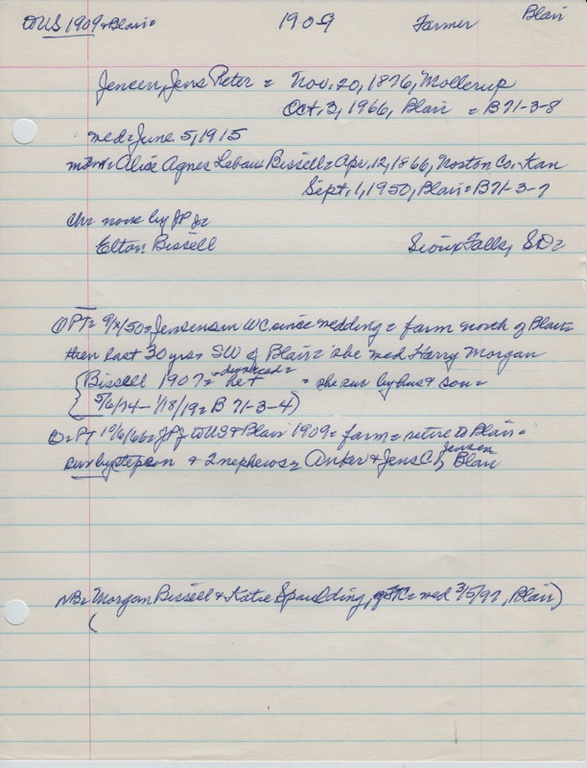 toUS 1909 + Blair = 1909 Farmer Blair
Jensen, Jens Peter = Nov. 20, 1876, Mollerup
Oct. 3, 1966, Blair = B71-3-8
med = June 5, 1915
Alice Agnes Bissell = Apr. 12, 1866, Norton Co. Kan
Sept. 1, 1950, Blair = B71-3-7
ch = none by JPJ =
Elton Bissell Sioux Falls, SD =
O PT = 9/ /50 = Jensens in WC since wedding = farm north of Blair =
then last 30 yrs = SW of Blair = she med Harry Morgan
(Bissell 1907 = divorced = = she sur by hus + son =
5/6/74 - 1/18/19 = B 71-3-4)
O = PT 10/6/66 = JPJ toUS + Blair 1909 = farm = retire to Blair =
sur by stepson + 2 nephews = Anker + Jens C. Jensen, Blair
NB = Morgan Bissell + Katie Spaulding, = med 3/5/97, Blair)
(